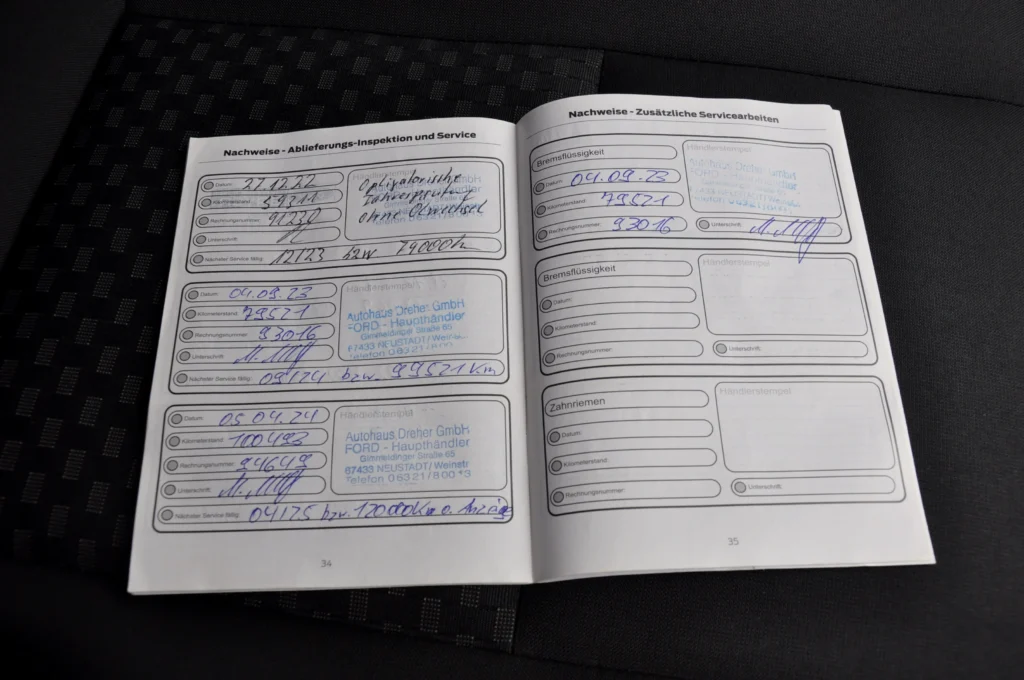 Nachweise - Ablieferungs-Inspektion und Service
Datum: 27.12.22
Kilometerstand: 59311
Rechnungsnummer: 91230
Unterschrift:
Händlerstempel
ohne Ölwechsel
Nächster Service fällig: 12/23 bzw
Datum: 04.09.23
Kilometerstand: 79521
Rechnungsnummer: 93016
Unterschrift:
Händlerstempel
Autohaus Dreher GmbH
FORD - Haupthändler
Gimmeldinger Straße 65
67433 NEUSTADT/Weinstr
Telefon 06321/
Nächster Service fällig: 09/24 bzw. 99521 Km
Datum: 05.04.24
Kilometerstand: 100493
Rechnungsnummer: 94649
Unterschrift:
Händlerstempel
Autohaus Dreher GmbH
FORD - Haupthändler
Gimmeldinger Straße 65
67433 NEUSTADT/Weinstr
Telefon 06321/800
Nächster Service fällig: 04/25 bzw. 120000 Km o. Anzeige
34
Nachweise - Zusätzliche Servicearbeiten
Bremsflüssigkeit
Datum: 04.09.23
Kilometerstand: 79521
Rechnungsnummer: 93016
Händlerstempel
Autohaus Dreher GmbH
Unterschrift:
Bremsflüssigkeit
Datum:
Kilometerstand:
Rechnungsnummer:
Händlerstempel
Unterschrift:
Zahnriemen
Datum:
Kilometerstand:
Rechnungsnummer:
Händlerstempel
Unterschrift:
35